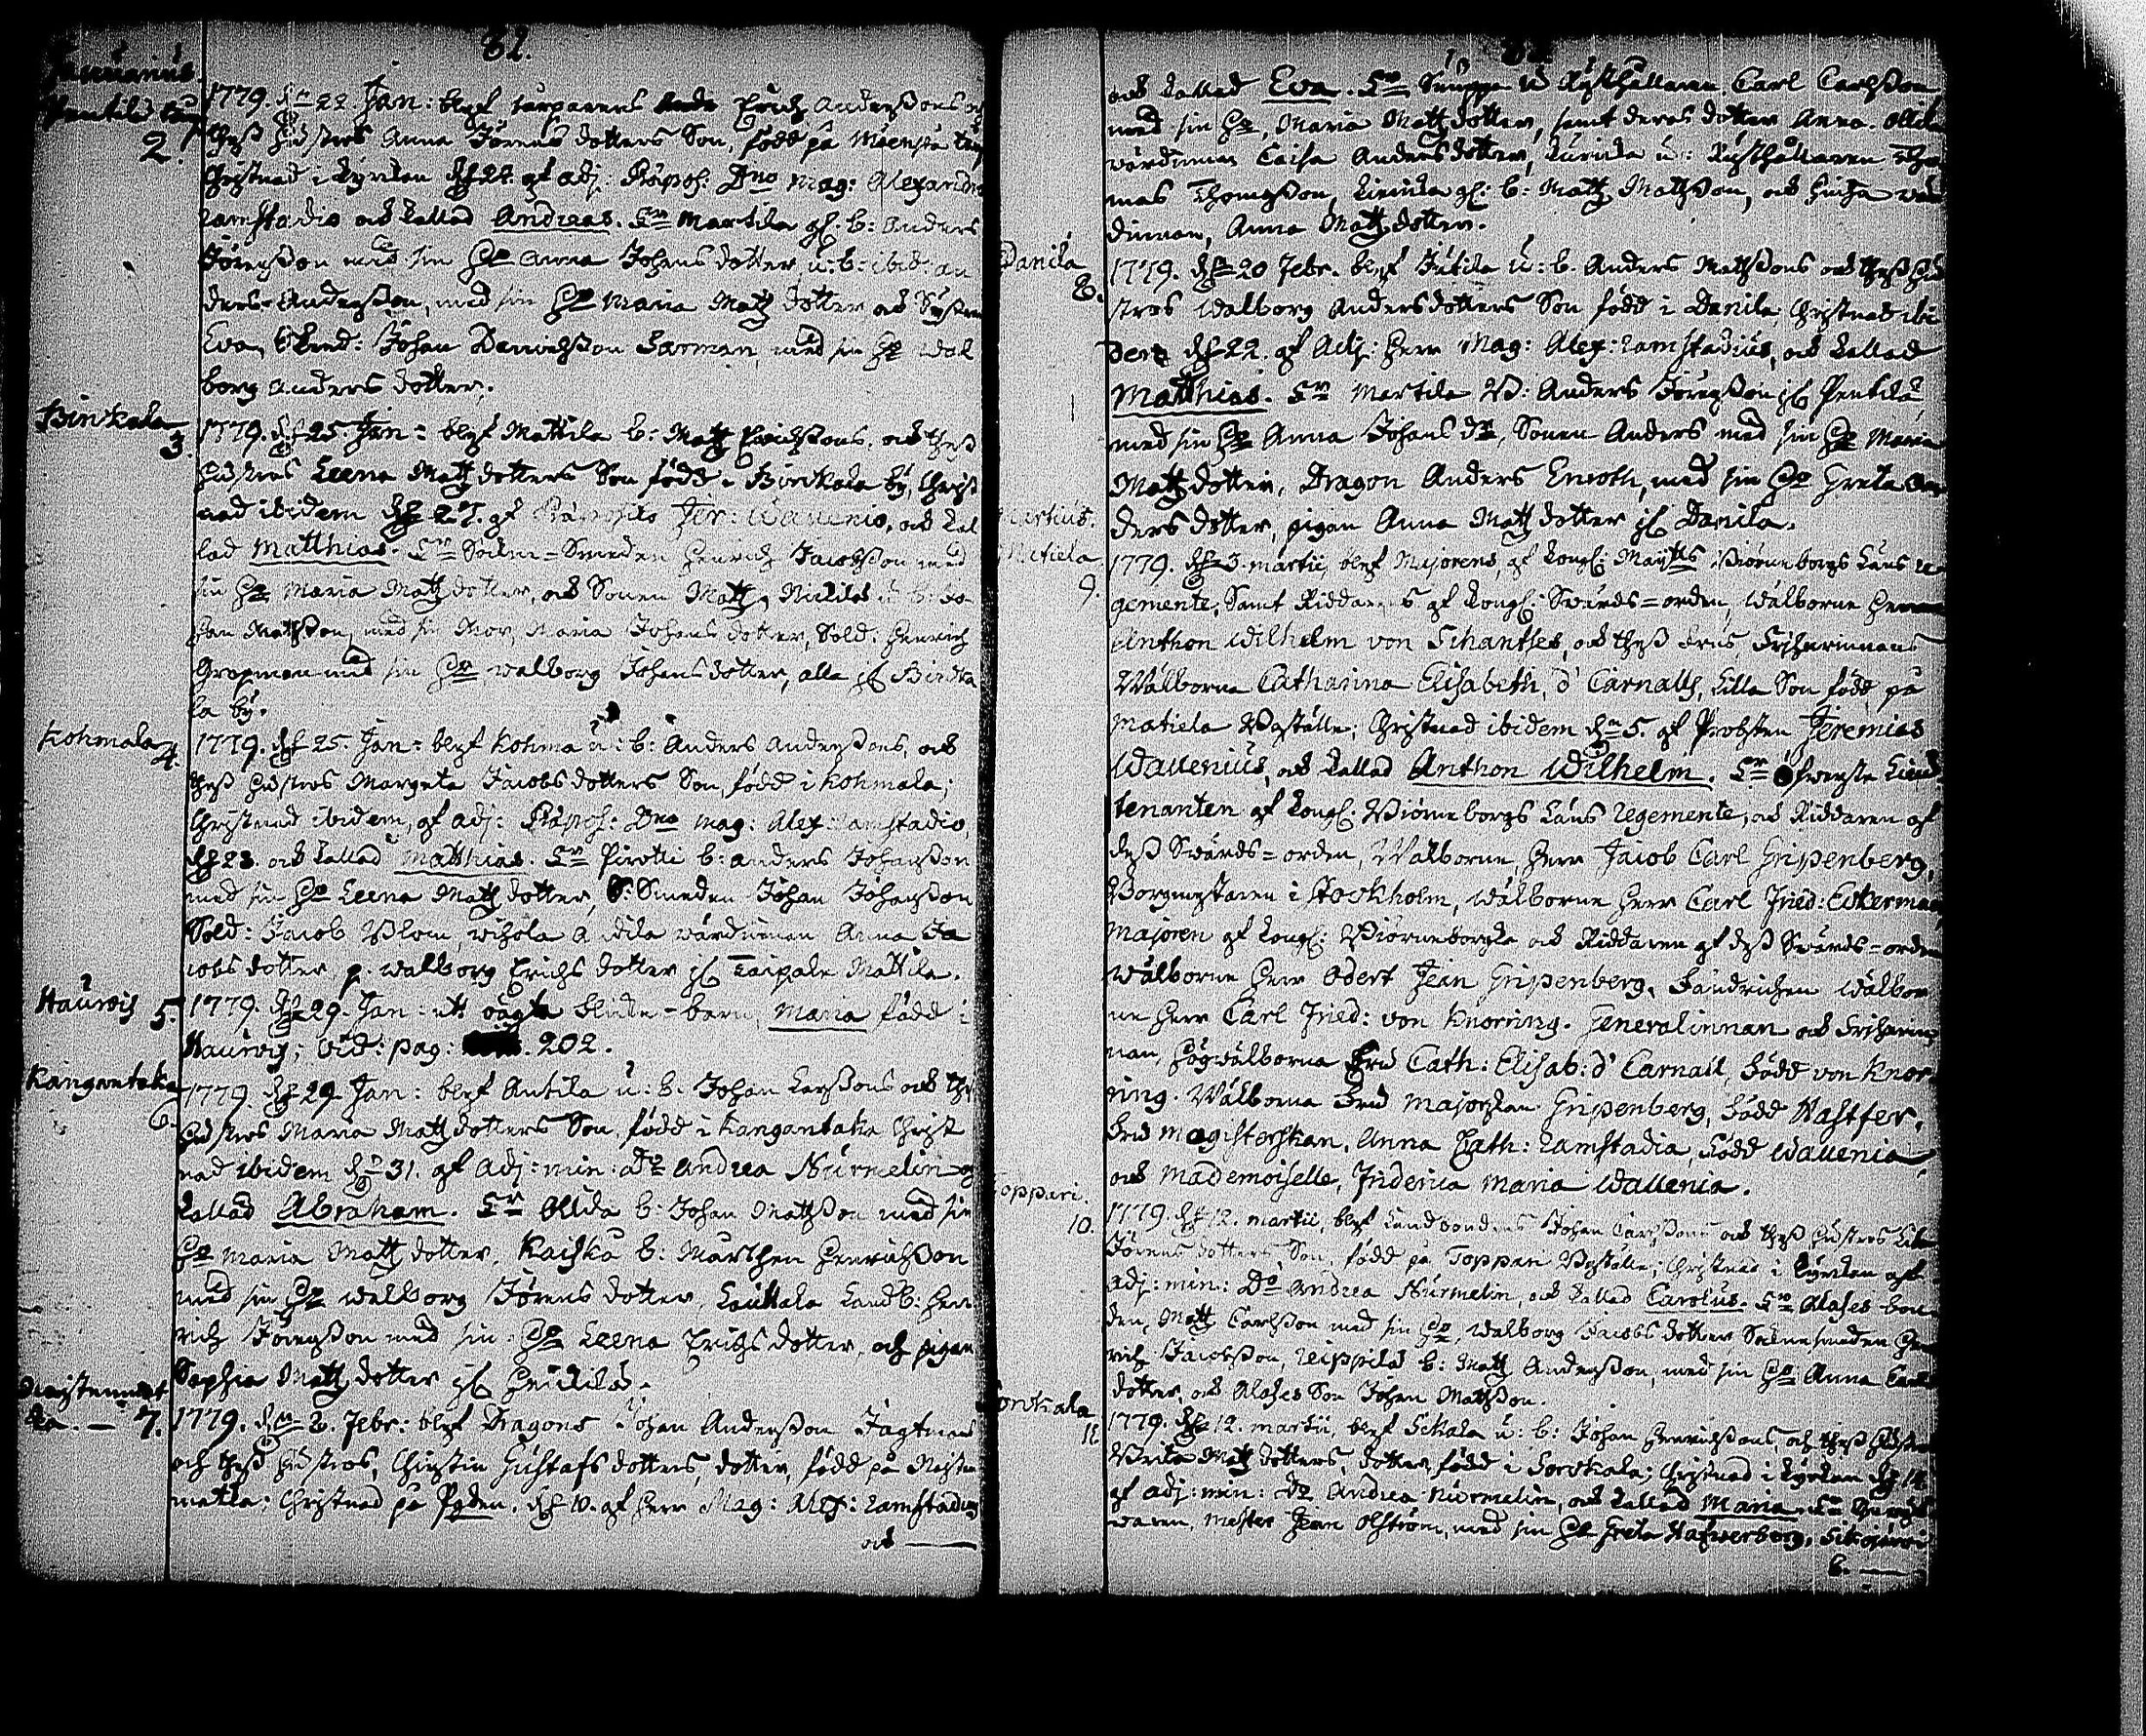 82.
Januarius.
Pentilä
2.
1779. d. 22. Jan: blef torparens Erich Anderssons och
thess hustrus Anna Jörens dotters Son, född på Moenpä
Christnad i Kyrkan d. 24. af adj: Præpos: Dno Mag: Alexandro
Lamstadio och kallad Andreas. Sr Martila gl: b: Anders
Jörensson med sin Ho Anna Johans dotter, u: b: ibid: An
ders Andersson, med sin Ho Maria Matz dotter och Syster
Eva, Johan Danielsson Barman, med sin Ho Wal
borg Anders dotter.
Birkala
3.
1779. d. 25. Jan: blef Mattila b: Matz Erichssons, och thess
hustrus Leena Matz dotters Son född i Birkala by, Christ
nad ibidem d. 27. af Præposito Jer: Wallenio, och kal
lad Matthias. Sr Sockne=Smeden Henrich Jacobsson med
sin Ho Maria Matz dotter, och Sonen Matz, Nickilä u: b: Jo
han Mattsson, med sin Mor, Maria Johans dotter, Sold: Henrich
Gropman med sin Ho Walborg Johans dotter, alla if: Birka
la by.
Kohmala
4.
1779. d. 25. Jan: blef Kohma u: b: Anders Anderssons, och
thess hustrus Margeta Jacobs dotters Son, född i Kohmala;
Christnad ibidem, af adj: Præpos: Dno Mag: Alex: Lamstadio,
d. 28. och kallad Matthias. Sr Pirotti b: Anders Johansson
med sin Ho Leena Matz dotter, S: Smeden Johan Johansson
Sold: Jacob Blom, Anna Ja
cobs dotter, p. Walborg Erichs dotter if: Taipale Mattila.
Haurois
5.
1779. d. 29. Jan: ett oägta barn, Maria född i
Haurois; vid: pag: 202.
Kangantaka
6.
1779. d. 29 Jan: blef Antila u: b: Johan Larssons och thess
hustrus Maria Matz dotters Son, född i Kangantaka Christ
nad ibidem d. 31. af adj: min: Do Andrea Nurmelin och
kallad Abraham. Sr Ollila b: Johan Mattsson med sin
Ho Maria Matz dotter, Kaiska b: Mårthen Henrichsson
med sin Ho Walborg Jörens dotter, Landb: Hen
rich Jörensson med sin Ho Leena Erichs dotter, och pigan
Sophia Matz dotter if: Heickilä.
7.
1779. d. 2. Febr: blef Dragons Johan Andersson Jagtmans
och thess hustrus, Christin Gustafs dotters, dotter, född på
Christnad på d. 10. af Herr Mag: Alex: Lamstadius
och —
och kallad Eva. Sr Rusthållaren Carl Carlsson
med sin Ho, Maria Matz dotter, samt deras dotter Anna. Ollila
wärdinnan Caisa Anders dotter, Rusthållaren Tho
mas Thomasson, gl: b: Matz Mattsson, och wär
dinnan, Anna Matz dotter.
Danila
8.
1779. d. 20 Febr. blef u: b. Anders Mattssons och thess hu
strus Walborg Anders dotters Son född i Danila, Christnad ibi
dem d. 22. af Adj: Herr Mag: Alex: Lamstadius, och kallad
Matthias. Sr Martila b: Anders Jörensson if: Pentilä
med sin Ho Anna Johans dr, Sonen Anders med sin Ho Maria
Matz dotter, Dragon Anders Enroth, med sin Ho Greta An
ders dotter, pigan Anna Matz dotter if: Danila.
Martius.
Matiela
9.
1779. d. 3. Martii, blef Majorens, af Kongl: Maytts Biörneborgs Läns re
gemente, Samt Riddarens af Kongl: Swärds=orden, Wälborne Herr
Anthon Wilhelm von Schantses, och thess Frus, Friherinnans
Wälborna Catharina Elisabeth, d' Carnalls, lilla Son född på
Matiela Boställe; Christnad ibidem d. 5. af Probsten Jeremias
Wallenius, och kallad Anthon Wilhelm. Sr Öfwerste Lieu
tenanten af Kongl: Biörneborgs Läns regemente, och Riddaren af
dess Swärds=orden, Wälborne, Herr Jacob Carl Gripenberg,
Borgmästaren i Stockholm, Wälborne Herr Carl Fried: Eckerman
Majoren af Kongl: Biörneborgska och Riddaren af dess Swärds=orden
Wälborne Herr Odert Jean Gripenberg, Fändrichen Wälbor
ne Herr Carl Fried: von Knorring. Generalinnan och Friherin
nan, Högwälborna Fru Cath: Elisab: d' Carnall, född von Knor
ring. Wälborna Fru Majorskan Gripenberg, född Hastfer.
Fru Magisterskan, Anna Cath: Lamstadia, född Wallenia
och Mademoiselle, Friderica Maria Wallenia.
Toppari.
10.
1779. d. 12. Martii, blef Landbondens Johan Carlssons och thess hustrus
Jörens dotters Son, född på Toppari Boställe; Christnad i Kyrkan af
adj: min: Do Andrea Nurmelin, och kallad Carolus. Sr Alases bon
den, Matz Carlsson med sin Ho, Walborg Jacobs dotter, Sockne smeden Hen
rich Jacobsson, b: Matz Andersson, med sin Ho Anna Carls
dotter, och Alases Son Johan Mattsson.
Sorckala
11.
1779. d. 12. Martii, blef Eskala u: b: Johan Henrichssons, och thess hustrus
Brita Matz dotters, dotter, född i Sorckala; Christnad i Kyrkan d. 14.
af adj: min: Do Andrea Nurmelin, och kallad Maria. Sr
Mester Jean Ohlström, med sin Ho Greta
b. —